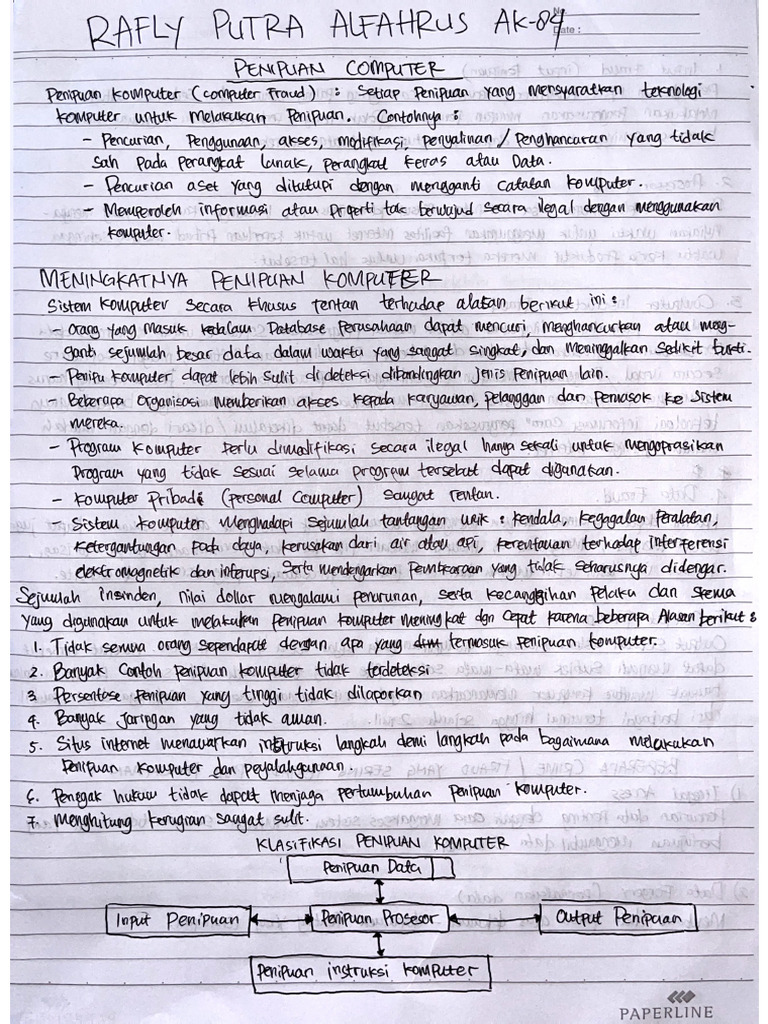 RAFLY PUTRA ALFAHRUS AK-04
No
Date :
PENIPUAN COMPUTER
Penipuan komputer (computer Fraud) : Setiap Penipuan yang mensyaratkan teknologi
komputer untuk melakukan Penipuan. Contohnya :
- Pencurian, Penggunaan, akses, modifikasi, Penyalinan / Penghancuran yang tidak
sah pada perangkat lunak, perangkat keras atau Data.
- Pencurian aset yang ditutupi dengan mengganti catatan komputer.
- Memperoleh informasi atau properti tak berwujud secara ilegal dengan menggunakan
komputer.
MENINGKATNYA PENIPUAN KOMPUTER
Sistem komputer secara khusus rentan terhadap alasan berikut ini :
- Orang yang masuk kedalam Database perusahaan dapat mencuri, menghancurkan atau meng-
ganti sejumlah besar data dalam waktu yang sangat singkat, dan meninggalkan sedikit bukti.
- Penipu komputer dapat lebih sulit di deteksi dibandingkan jenis penipuan lain.
- Beberapa organisasi memberikan akses kepada karyawan, pelanggan dan pemasok ke sistem
mereka.
- Program komputer perlu dimodifikasi secara ilegal hanya sekali untuk mengoprasikan
program yang tidak sesuai selama program tersebut dapat digunakan.
- Komputer Pribadi (personal computer) sangat rentan.
- Sistem komputer menghadapi sejumlah tantangan unik : kendala, kegagalan peralatan,
ketergantungan pada daya, kerusakan dari air atau api, kerentanan terhadap interferensi
elektromagnetik dan interupsi, serta mendengarkan pembicaraan yang tidak seharusnya didengar.
Sejumlah insinden, nilai dollar mengalami penurunan, serta kecanggihan pelaku dan skema
yang digunakan untuk melakukan penipuan komputer meningkat dgn cepat karena beberapa alasan berikut :
1. Tidak semua orang sependapat dengan apa yang termasuk penipuan komputer.
2. Banyak contoh penipuan komputer tidak terdeteksi
3 Persentase penipuan yang tinggi tidak dilaporkan
4. Banyak jaringan yang tidak aman.
5. Situs internet menawarkan instruksi langkah demi langkah pada bagaimana melakukan
penipuan komputer dan peyalahgunaan.
6. Penegak hukum tidak dapat menjaga pertumbuhan penipuan komputer.
7. Menghitung kerugian sangat sulit.
KLASIFIKASI PENIPUAN KOMPUTER
Penipuan Data
Input Penipuan
Penipuan Prosesor
Output Penipuan
Penipuan instruksi komputer
PAPERLINE